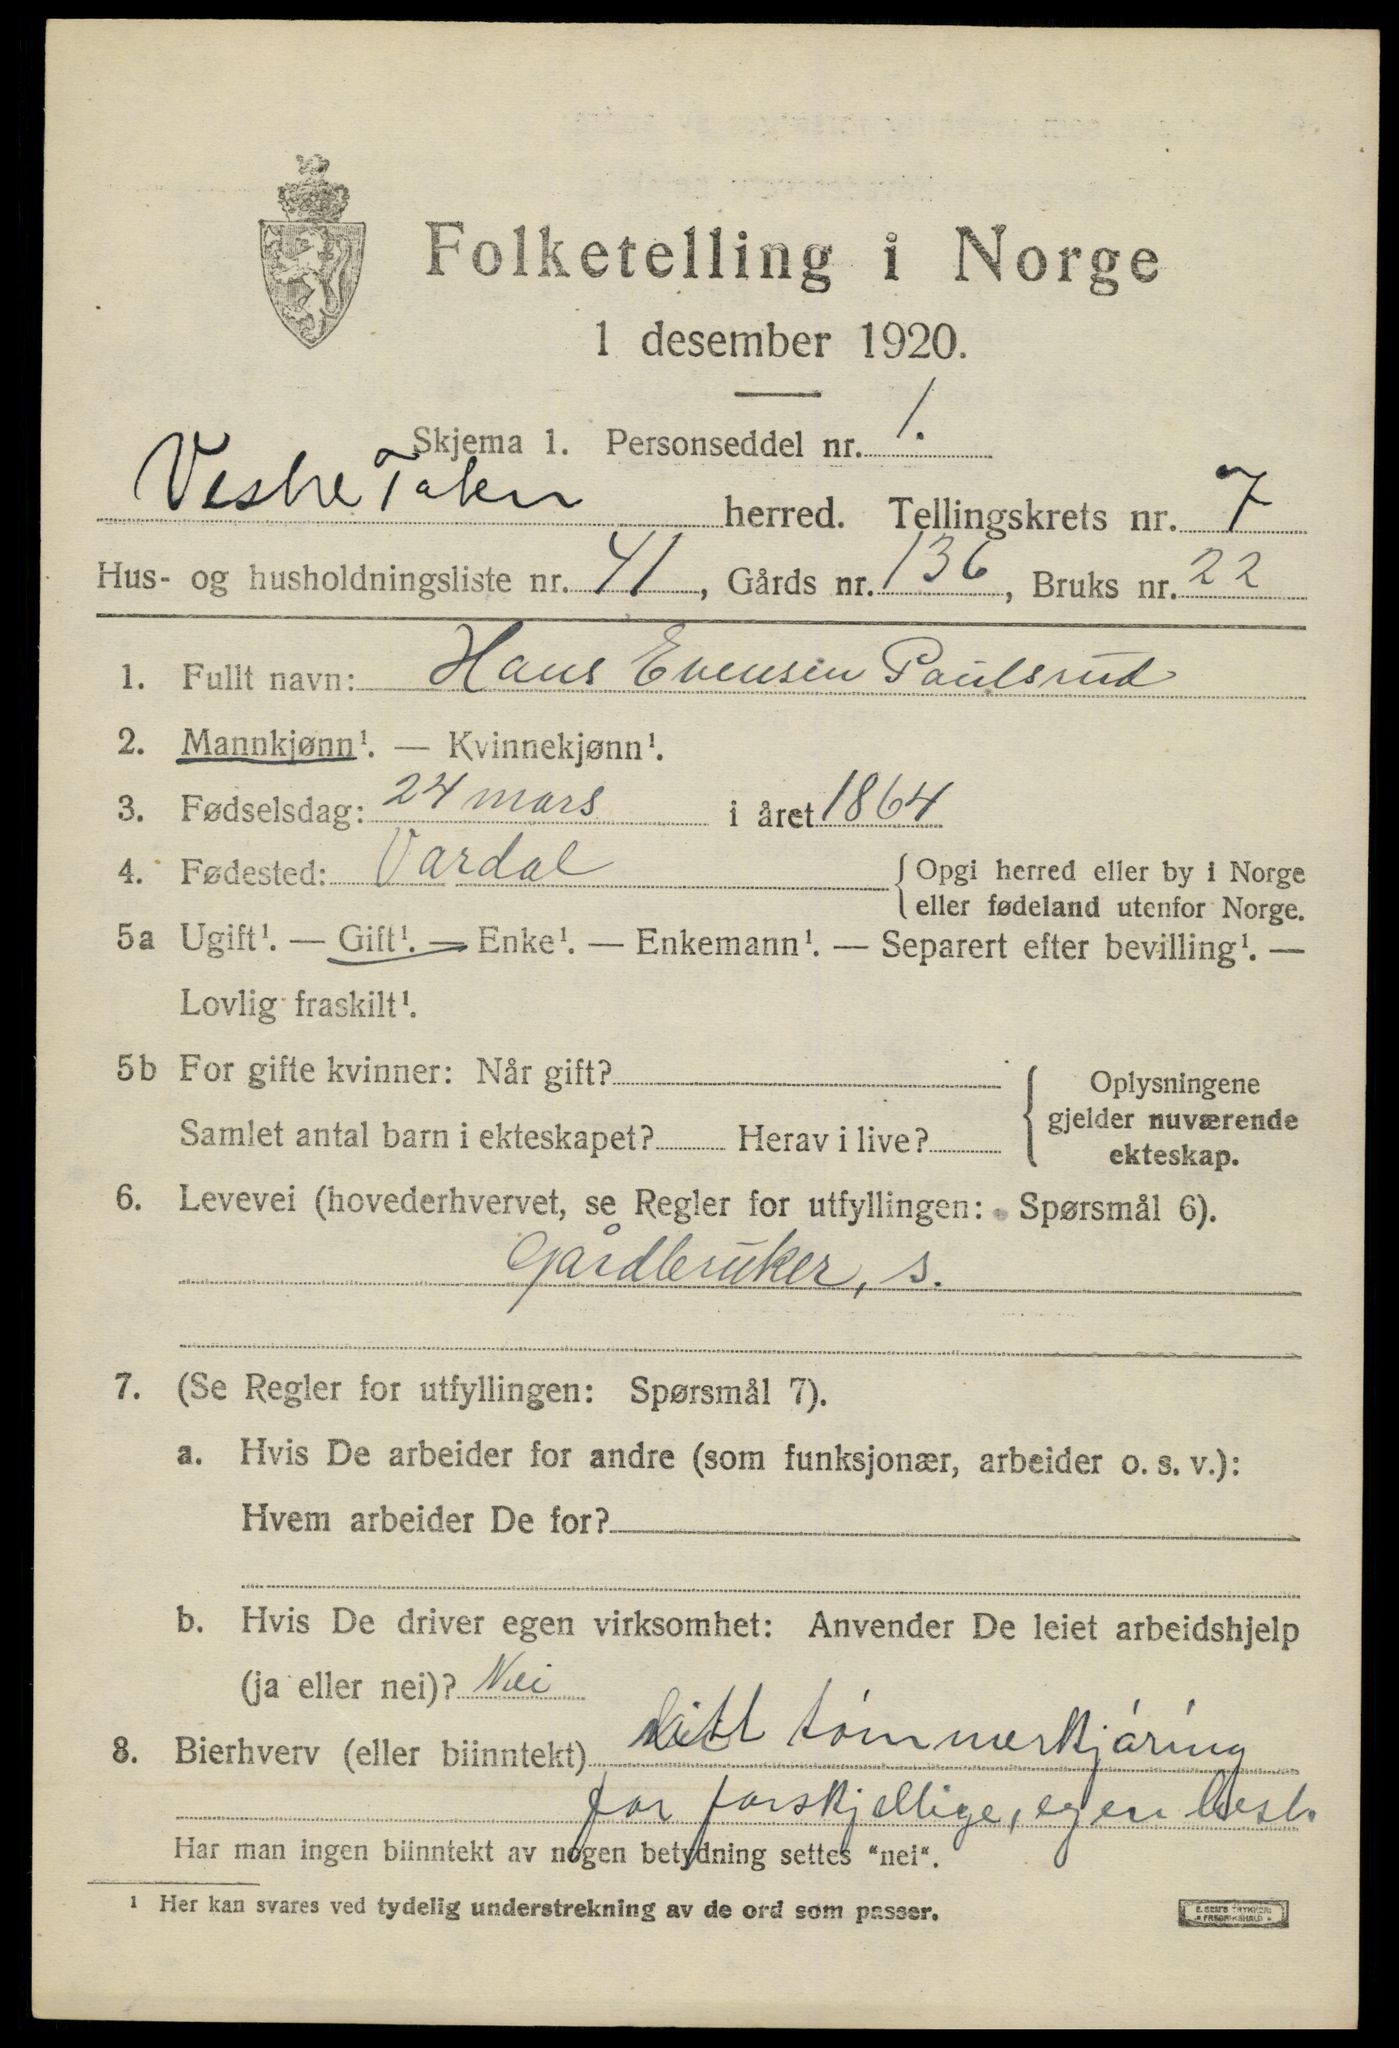 Folketelling i Norge
1 desember 1920.
Skjema 1. Personseddel nr. 1.
Vestre Toten herred. Tellingskrets nr. 7
Hus- og husholdningsliste nr. 41, Gårds nr. 136, Bruks nr. 22
1. Fullt navn: Hans Evensen Paulsrud
2. Mannkjønn¹. — Kvinnekjønn¹.
3. Fødselsdag: 24 mars i året 1864
4. Fødested: Vardal
Opgi herred eller by i Norge
eller fødeland utenfor Norge.
5a Ugift¹. — Gift¹. — Enke¹. — Enkemann¹. — Separert efter bevilling¹. —
Lovlig fraskilt¹.
5b For gifte kvinner: Når gift?
Samlet antal barn i ekteskapet? Herav i live?
Oplysningene
gjelder nuværende
ekteskap.
6. Levevei (hovederhvervet, se Regler for utfyllingen: Spørsmål 6).
Gårdbruker, s.
7. (Se Regler for utfyllingen: Spørsmål 7).
a. Hvis De arbeider for andre (som funksjonær, arbeider o. s. v.):
Hvem arbeider De for?
b. Hvis De driver egen virksomhet: Anvender De leiet arbeidshjelp
(ja eller nei)? Nei
8. Bierhverv (eller biinntekt) Litt tømmerkjøring
for forskjellige, egen hest.
Har man ingen biinntekt av nogen betydning settes "nei".
¹ Her kan svares ved tydelig understrekning av de ord som passer.
E. SEM'S TRYKKERI
FREDRIKSHALD